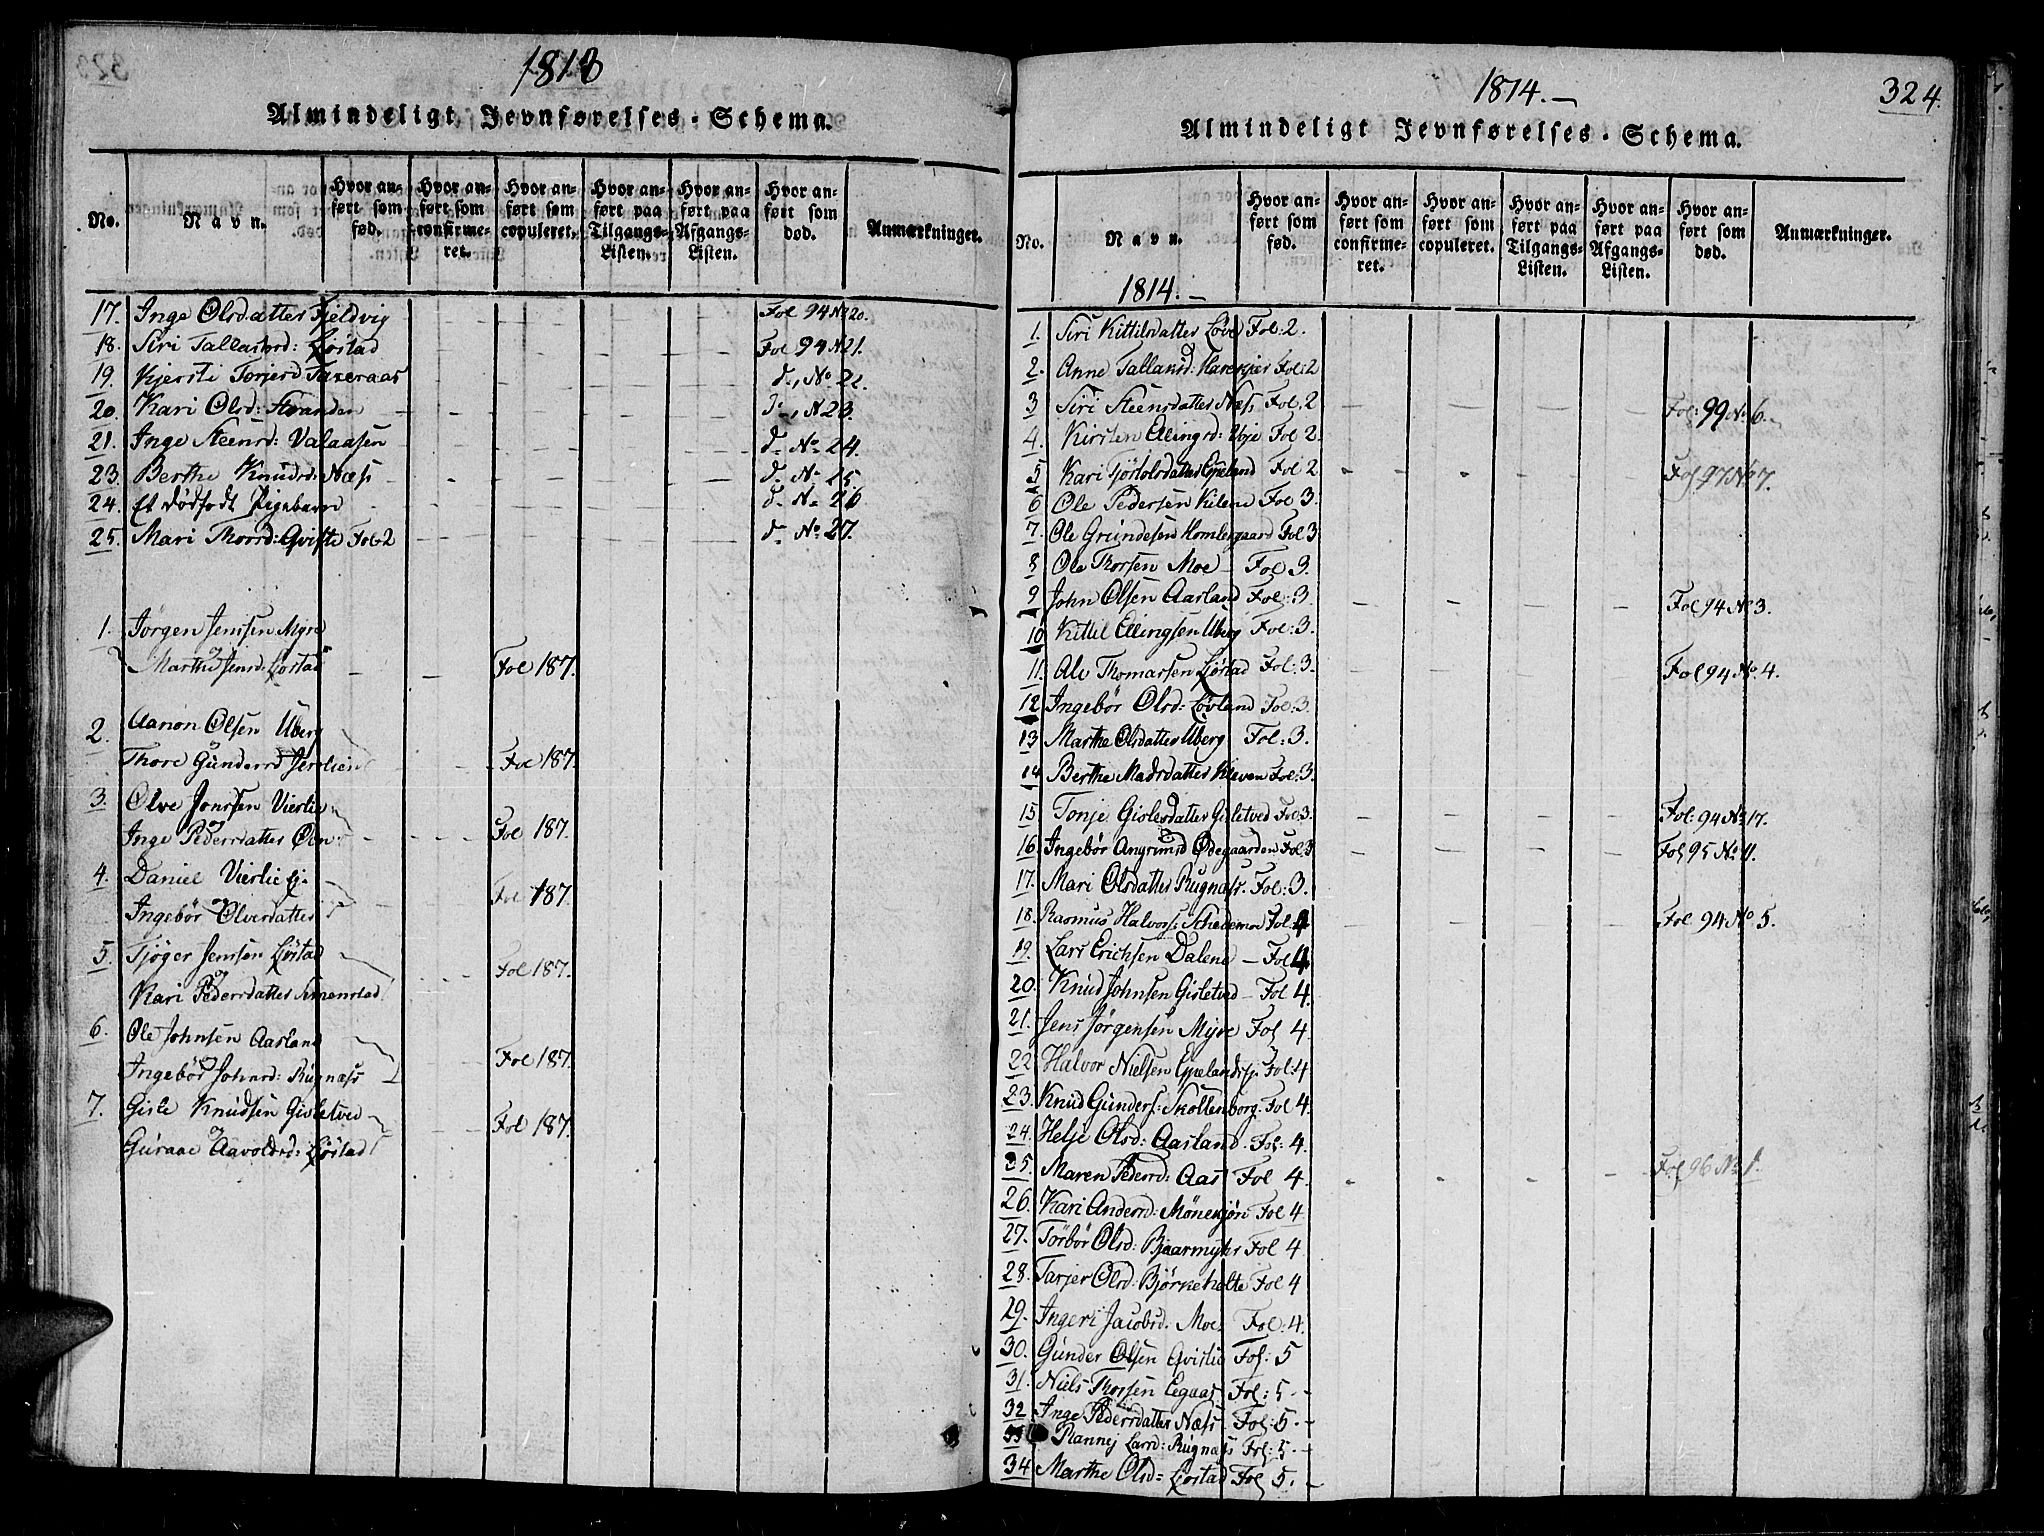 1813
Almindeligt Jevnførelses-Schema.
No.
Navn.
Hvor anført som fød.
Hvor anført som confirmeret.
Hvor anført som copuleret.
Hvor anført paa Tilgangs-Listen.
Hvor anført paa Afgangs-Listen.
Hvor anført som død.
Anmærkninger.
17. Inge Olsdatter Fjeldvig Fol 94 No 20.
18. Siri Tallaksd: Ljøstad Fol 94 N 21.
19. Kjersti Torjersd d., No 22.
20. Kari Olsd: Stranden d., N 23.
21. Inge Steensd: Valaasen d. No. 24.
23. Berthe Knudsd: Næss d. N. 25.
24. Et dødfødt Pigebarn d. N. 26
25. Mari Thorsd: Qviste Fol 2 d. No. 27.
1. Jørgen Jenssen Myre
Marthe Jensd: Ljøstad Fol 187.
2. Aanon Olsen Uberg
Thore Gundersd Fol 187.
3. Olve Jonssen Vierlie
Inge Pedersdatter Fol 187.
4. Daniel Vierlie ej.
Ingebør Olversdatter Fol 187.
5. Tjøger Jenssen Ljøstad
Kari Pedersdatter Simenstad Fol 187.
6. Ole Johnsen Aasland
Ingebør Johnsd: Rugnass Fol 187.
7. Gisle Knudsen Gisletved
Guraae Aavoldsd: Ljøstad Fol 187.
1814.
324.
Almindeligt Jevnførelses-Schema.
No.
Navn.
Hvor anført som fød.
Hvor anført som confirmeret.
Hvor anført som copuleret.
Hvor anført paa Tilgangs-Listen.
Hvor anført paa Afgangs-Listen.
Hvor anført som død.
Anmærkninger.
1814.
1. Siri Kittilsdatter Løve Fol: 2.
2. Anne Tallaksd: Fol: 2
3 Siri Steensdatter Næss Fol. 2 Fol: 99 No 6.
4. Kirsten Ellingsd: Fol 2.
5 Kari Espeland Fol 2 Fol 97 No 7.
6 Ole Pedersen Kilene Fol 3.
7. Ole Fol 3
8 Ole Thorsen Moe Fol 3.
9 John Olsen Aasland Fol: 3. Fol 94 No 3.
10 Kittil Ellingsen Uberg Fol: 3.
11. Ale Thomassen Ljøstad Fol: 3. Fol 94 No. 4.
12 Ingebør Olsd: Løvland Fol: 3.
13 Marthe Olsdatter Uberg Fol: 3.
14 Berthe Madsdatter Kleven Fol: 3.
15 Tonje Gislesdatter Gisletved Fol: 3. Fol: 94 No 17.
16. Ingebør Angrimsd Ødegaarden Fol. 3 Fol 95 No 11.
17. Mari Olsdatter Rugnass. Fol: 3.
18. Rasmus Halvors: Fol: 4 Fol 94 No 5.
19. Lars Erichsen Dalene Fol 4
20. Knud Johnsen Gisletved Fol 4.
21. Jens Jørgensen Myre Fol 4
22 Halvor Nielsen Fol: 4
23. Knud Gunders: Skollenborg. Fol 4.
24. Helje Olsd: Aasland. Fol: 4.
25. Maren Pedersd: Aas Fol 4. Fol 96 No 1.
26. Kari Andersd: Fol 4
27. Torbør Olsd: Bjaarmyhr Fol 4
28. Tarjer Olsd: Bjørkeholte Fol 4
29. Ingeri Jacobsd. Moe. Fol: 4.
30. Gunder Olsen Qvistie Fol: 5
31. Niels Thorsen Egaas Fol: 5
32 Inge Pedersdatter Næss Fol: 5
33 Rannej Larsd: Rugnass Fol: 5
34 Marthe Olsd: Ljøstad Fol 5.